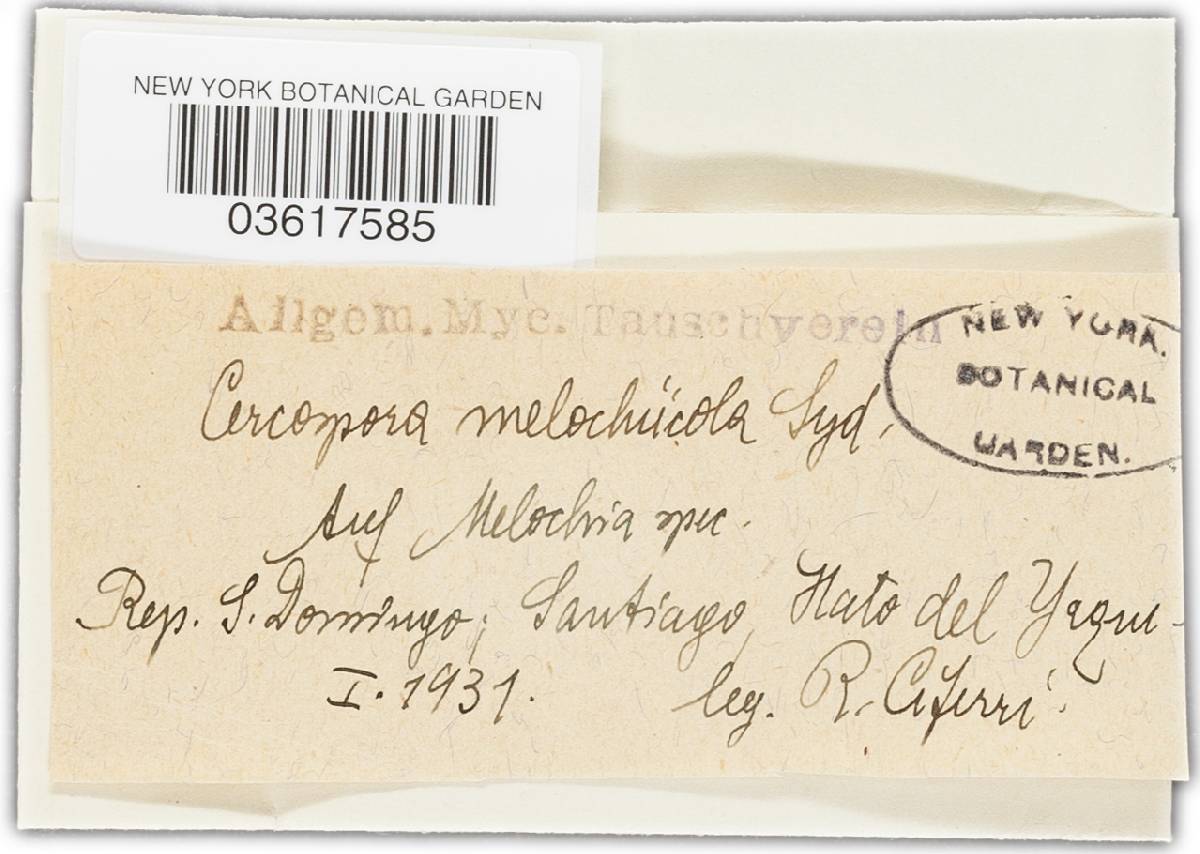 NEW YORK BOTANICAL GARDEN
03617585
Allgem. Myc. Tauschverein
NEW YORK.
BOTANICAL
GARDEN.
Cercospora melochiicola Syd.
Auf Melochia spec.
Rep. S. Domingo; Santiago, Hato del Yaqui -
I. 1931. leg. R. Ciferri.